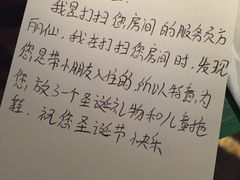 我是打扫您房间的服务员方
丽仙，我在打扫您房间时，发现
您是带小朋友入住的，所以特意为
您放了个圣诞礼物和儿童拖
鞋，祝您圣诞节快乐